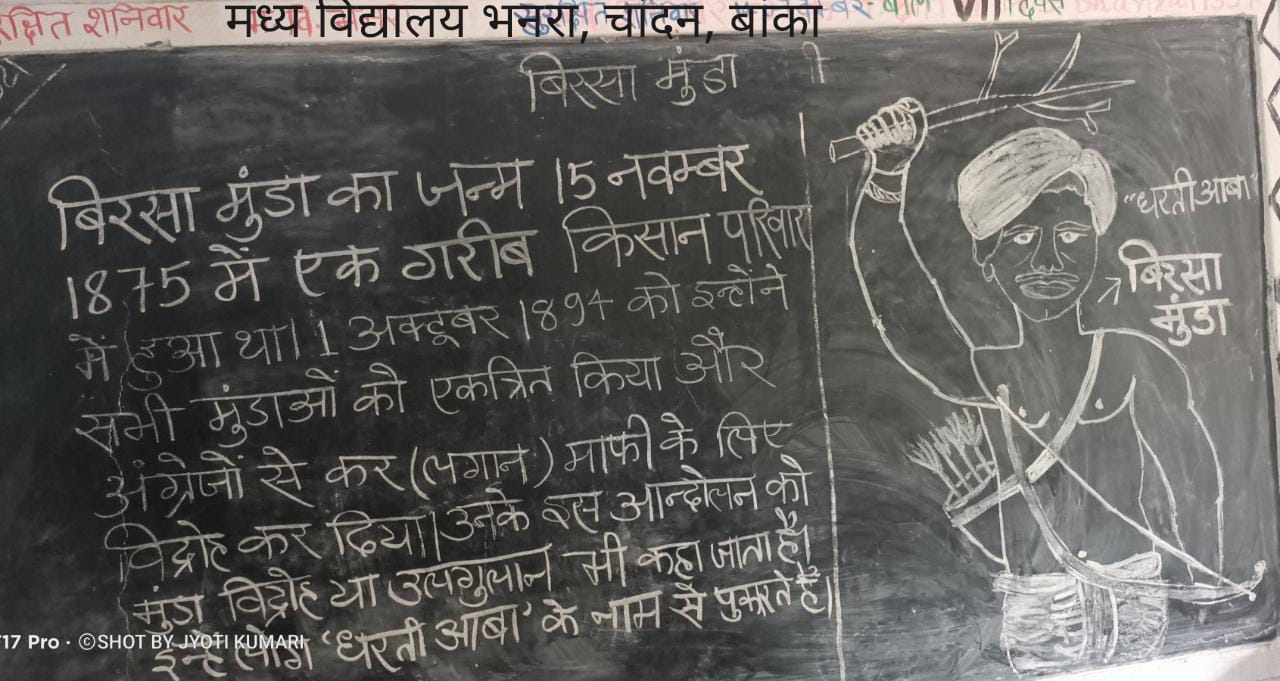 रक्षित शनिवार
मध्य विद्यालय भनरा, चांदन, बांका
बिरसा मुंडा
बिरसा मुंडा का जन्म 15 नवम्बर
1875 में एक गरीब किसान परिवार
में हुआ था। 1 अक्टूबर 1894 को इन्होंने
सभी मुंडाओं को एकत्रित किया और
अंग्रेजों से कर (लगान) माफी के लिए
विद्रोह कर दिया। उनके इस आन्दोलन को
मुंडा विद्रोह या उलगुलान भी कहा जाता है।
इन्हे लोग 'धरती आबा' के नाम से पुकारते है।
"धरती आबा"
बिरसा
मुंडा
17 Pro · ©SHOT BY JYOTI KUMARI